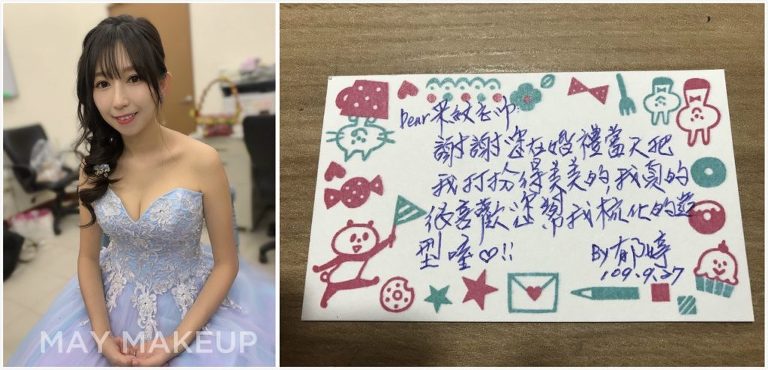 MAY MAKEUP
Dear 采妏老師
謝謝您在婚禮當天把
我打扮得美美的，我真的
很喜歡您幫我梳化的造
型喔♡!!
By郁婷
109.9.27